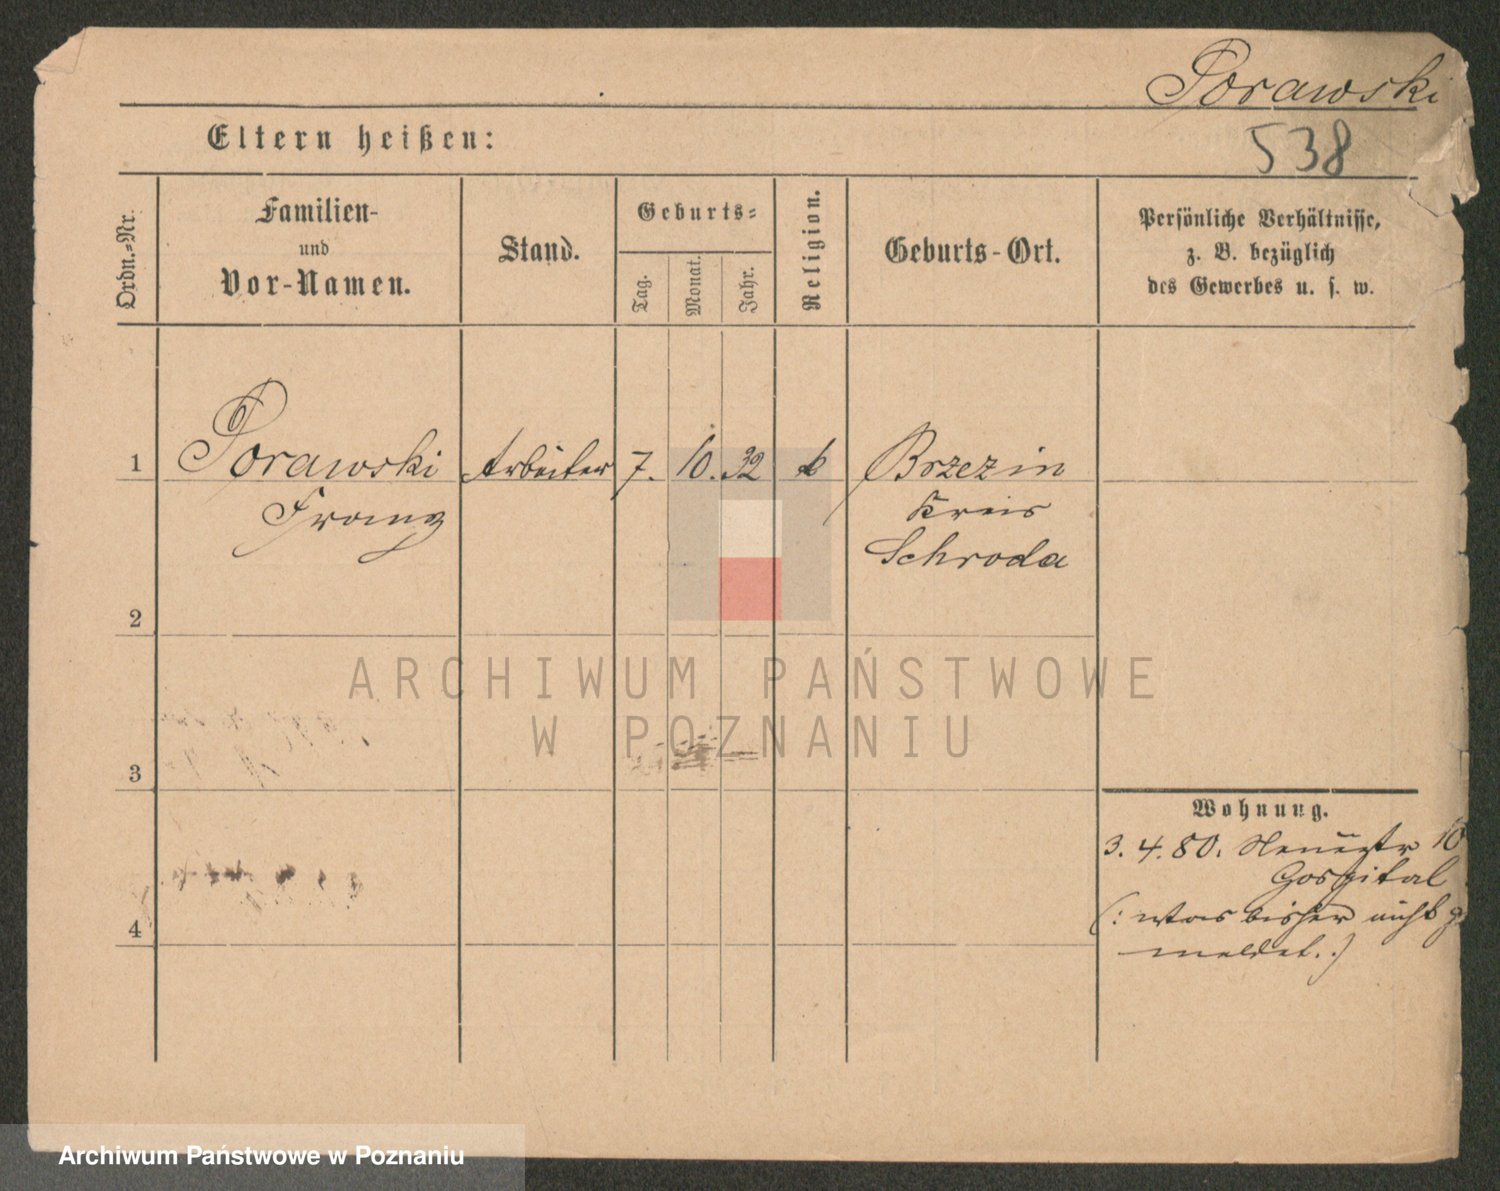 Porawski
538
Eltern heißen:
Ordn.-Nr.
Familien-
und
Vor-Namen.
Stand.
Geburts-
Tag.
Monat.
Jahr.
Religion.
Geburts-Ort.
Persönliche Verhältnisse,
z. B. bezüglich
des Gewerbes u. s. w.
1 Porawski Arbeiter 7. 10. 32 k Brzezin
Franz Kreis
Schroda
2
ARCHIWUM PAŃSTWOWE
W POZNANIU
3
Wohnung.
3. 4. 80. 10
Hospital
(: war bisher nicht ge
meldet.:)
4
Archiwum Państwowe w Poznaniu